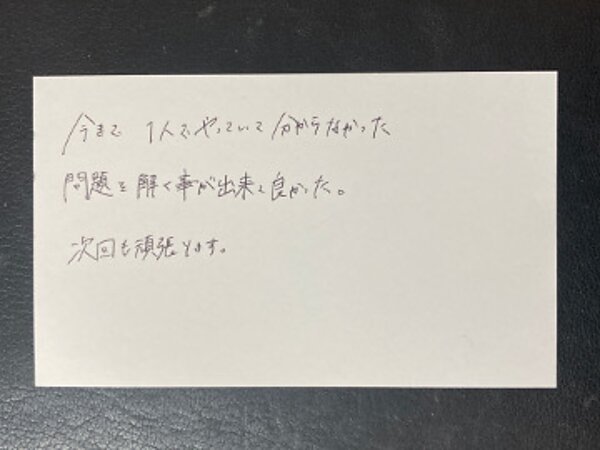 今まで 1人でやっていて分からなかった
問題を解く事が出来て良かった。
次回も頑張ります。